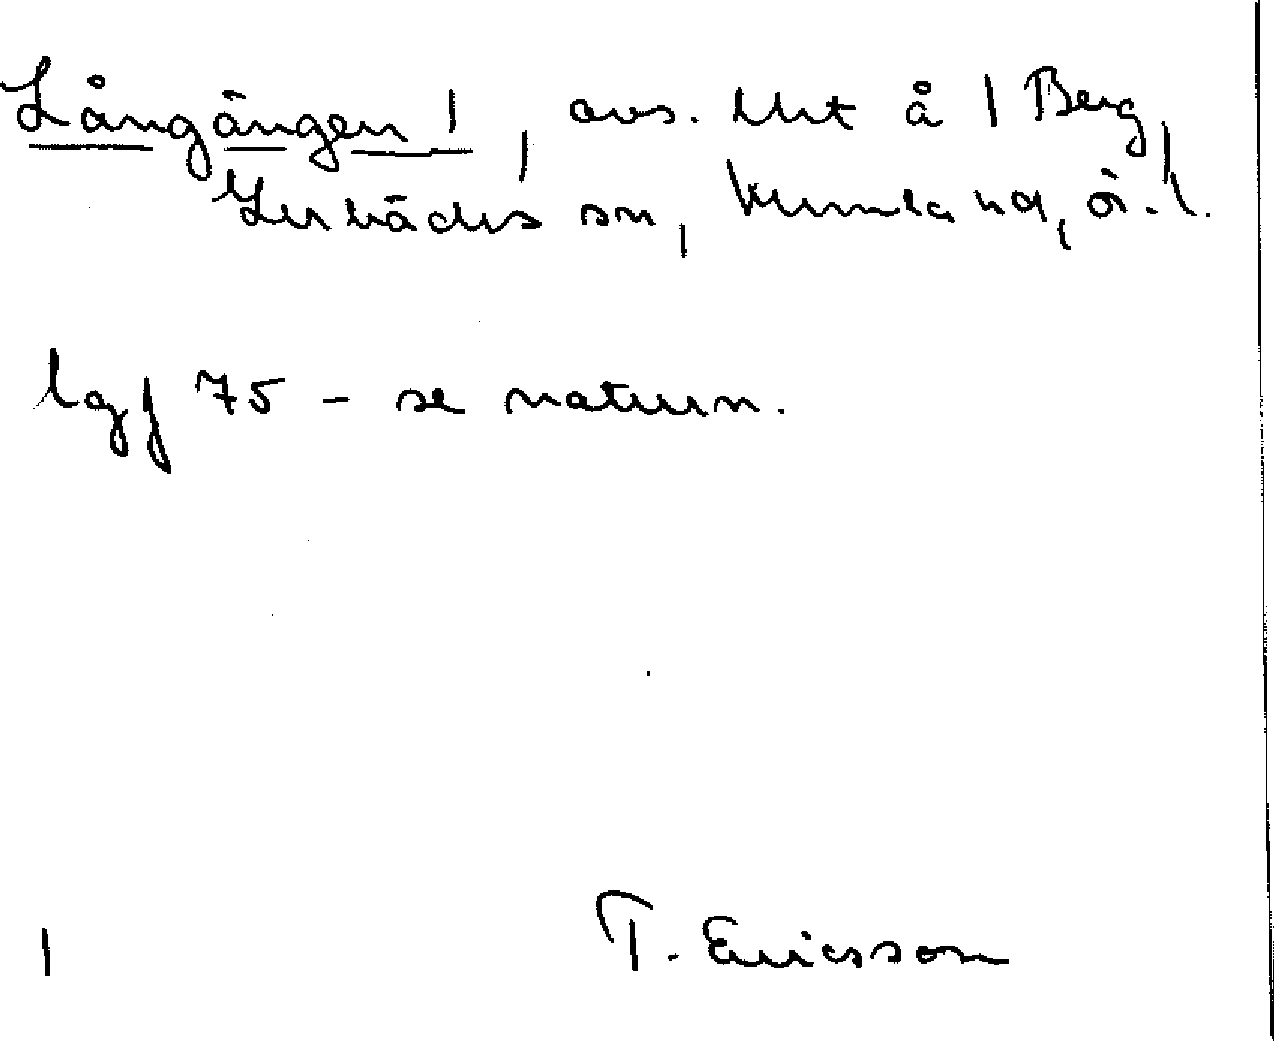 Långängen 1, avs. Utt å 1 Berg,
Lerbäcks sn, Kumla hd, ör. l.
lgf 75 - se naturn.
1 T. Ericsson